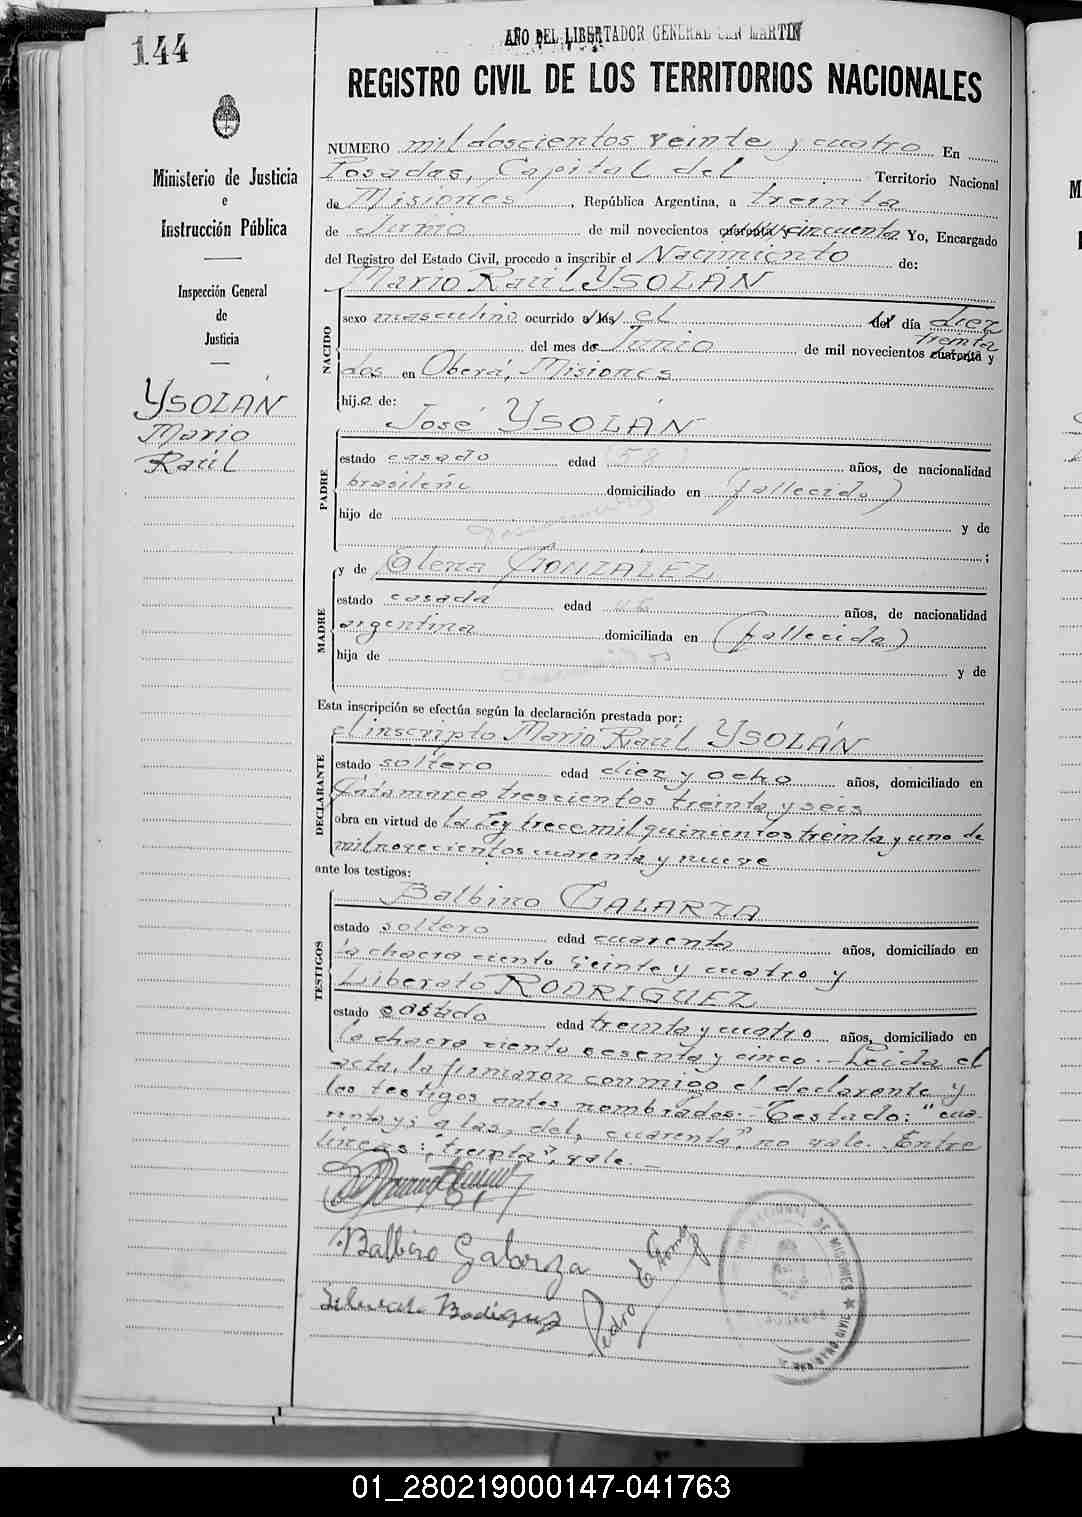 144
AÑO DEL LIBERTADOR GENERAL SAN MARTIN
REGISTRO CIVIL DE LOS TERRITORIOS NACIONALES
Ministerio de Justicia
e
Instrucción Pública
Inspección General
de
Justicia
YSOLÁN
Mario
Raúl
NUMERO mil doscientos veinte y cuatro En
Posadas, Capital del Territorio Nacional
de Misiones, República Argentina, a treinta
de Junio de mil novecientos cuarenta y cincuenta Yo, Encargado
del Registro del Estado Civil, procedo a inscribir el Nacimiento de:
Mario Raúl YSOLÁN
NACIDO
sexo masculino ocurrido a las el del día diez
treinta
del mes de Junio de mil novecientos cuarenta y
dos en Oberá, Misiones
hijo de:
José YSOLÁN
PADRE
estado casado edad (58) años, de nacionalidad
brasileña domiciliado en (fallecido)
hijo de y de
;
y de Elena GONZÁLEZ
MADRE
estado casada edad años, de nacionalidad
argentina domiciliada en (fallecida)
hija de y de
Esta inscripción se efectúa según la declaración prestada por:
el inscripto Mario Raúl YSOLÁN
DECLARANTE
estado soltero edad diez y ocho años, domiciliado en
Catamarca trescientos treinta y seis
obra en virtud de la Ley trece mil quinientos treinta y uno de
mil novecientos cuarenta y nueve
ante los testigos:
Balbino GALARZA
TESTIGOS
estado soltero edad cuarenta años, domiciliado en
la chacra ciento veinte y cuatro y
Liberato RODRIGUEZ
estado casado edad treinta y cuatro años, domiciliado en
la chacra ciento sesenta y cinco.- Leida el
acta, la firmaron conmigo el declarante y
los testigos antes nombrados.- Testado: "cua-
renta y; a las, del, cuarenta", no vale. Entre
líneas: "treinta", vale.-
Balbino Galarza
Liberato Rodriguez
Pedro E Gomez
NACIONAL DE MISIONES
01_280219000147-041763